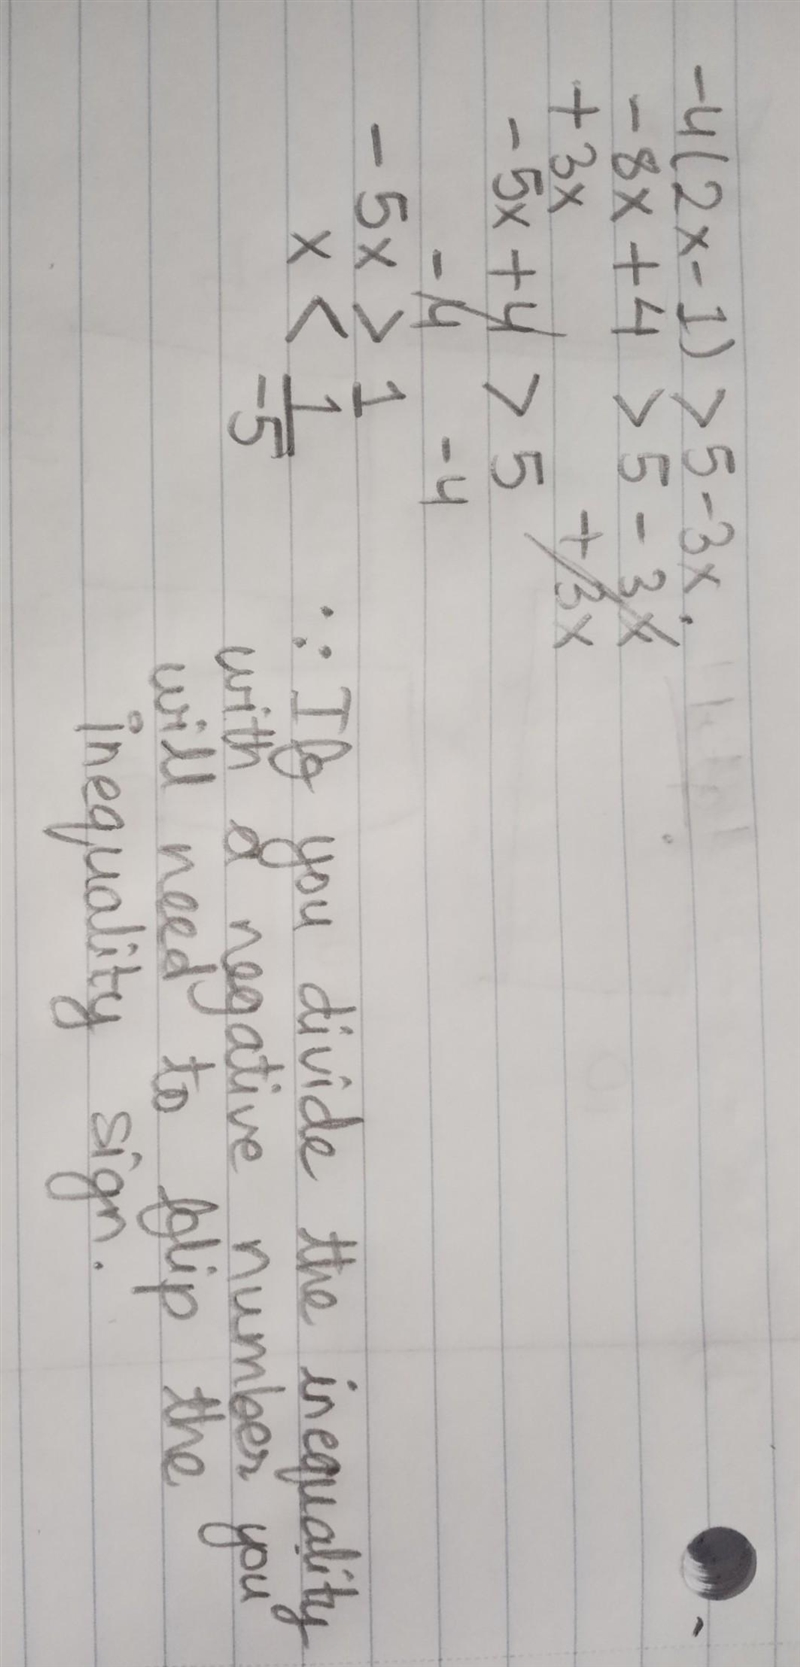 -4(2x-1) > 5-3x.
-8x+4 > 5-3x
+3x +3x
-5x+4 > 5
-4 -4
-5x > 1
x < 1/-5
∵ If you divide the inequality
with a negative number you
will need to flip the
inequality sign.